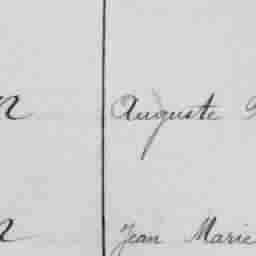 n Auguste
n Jean Marie